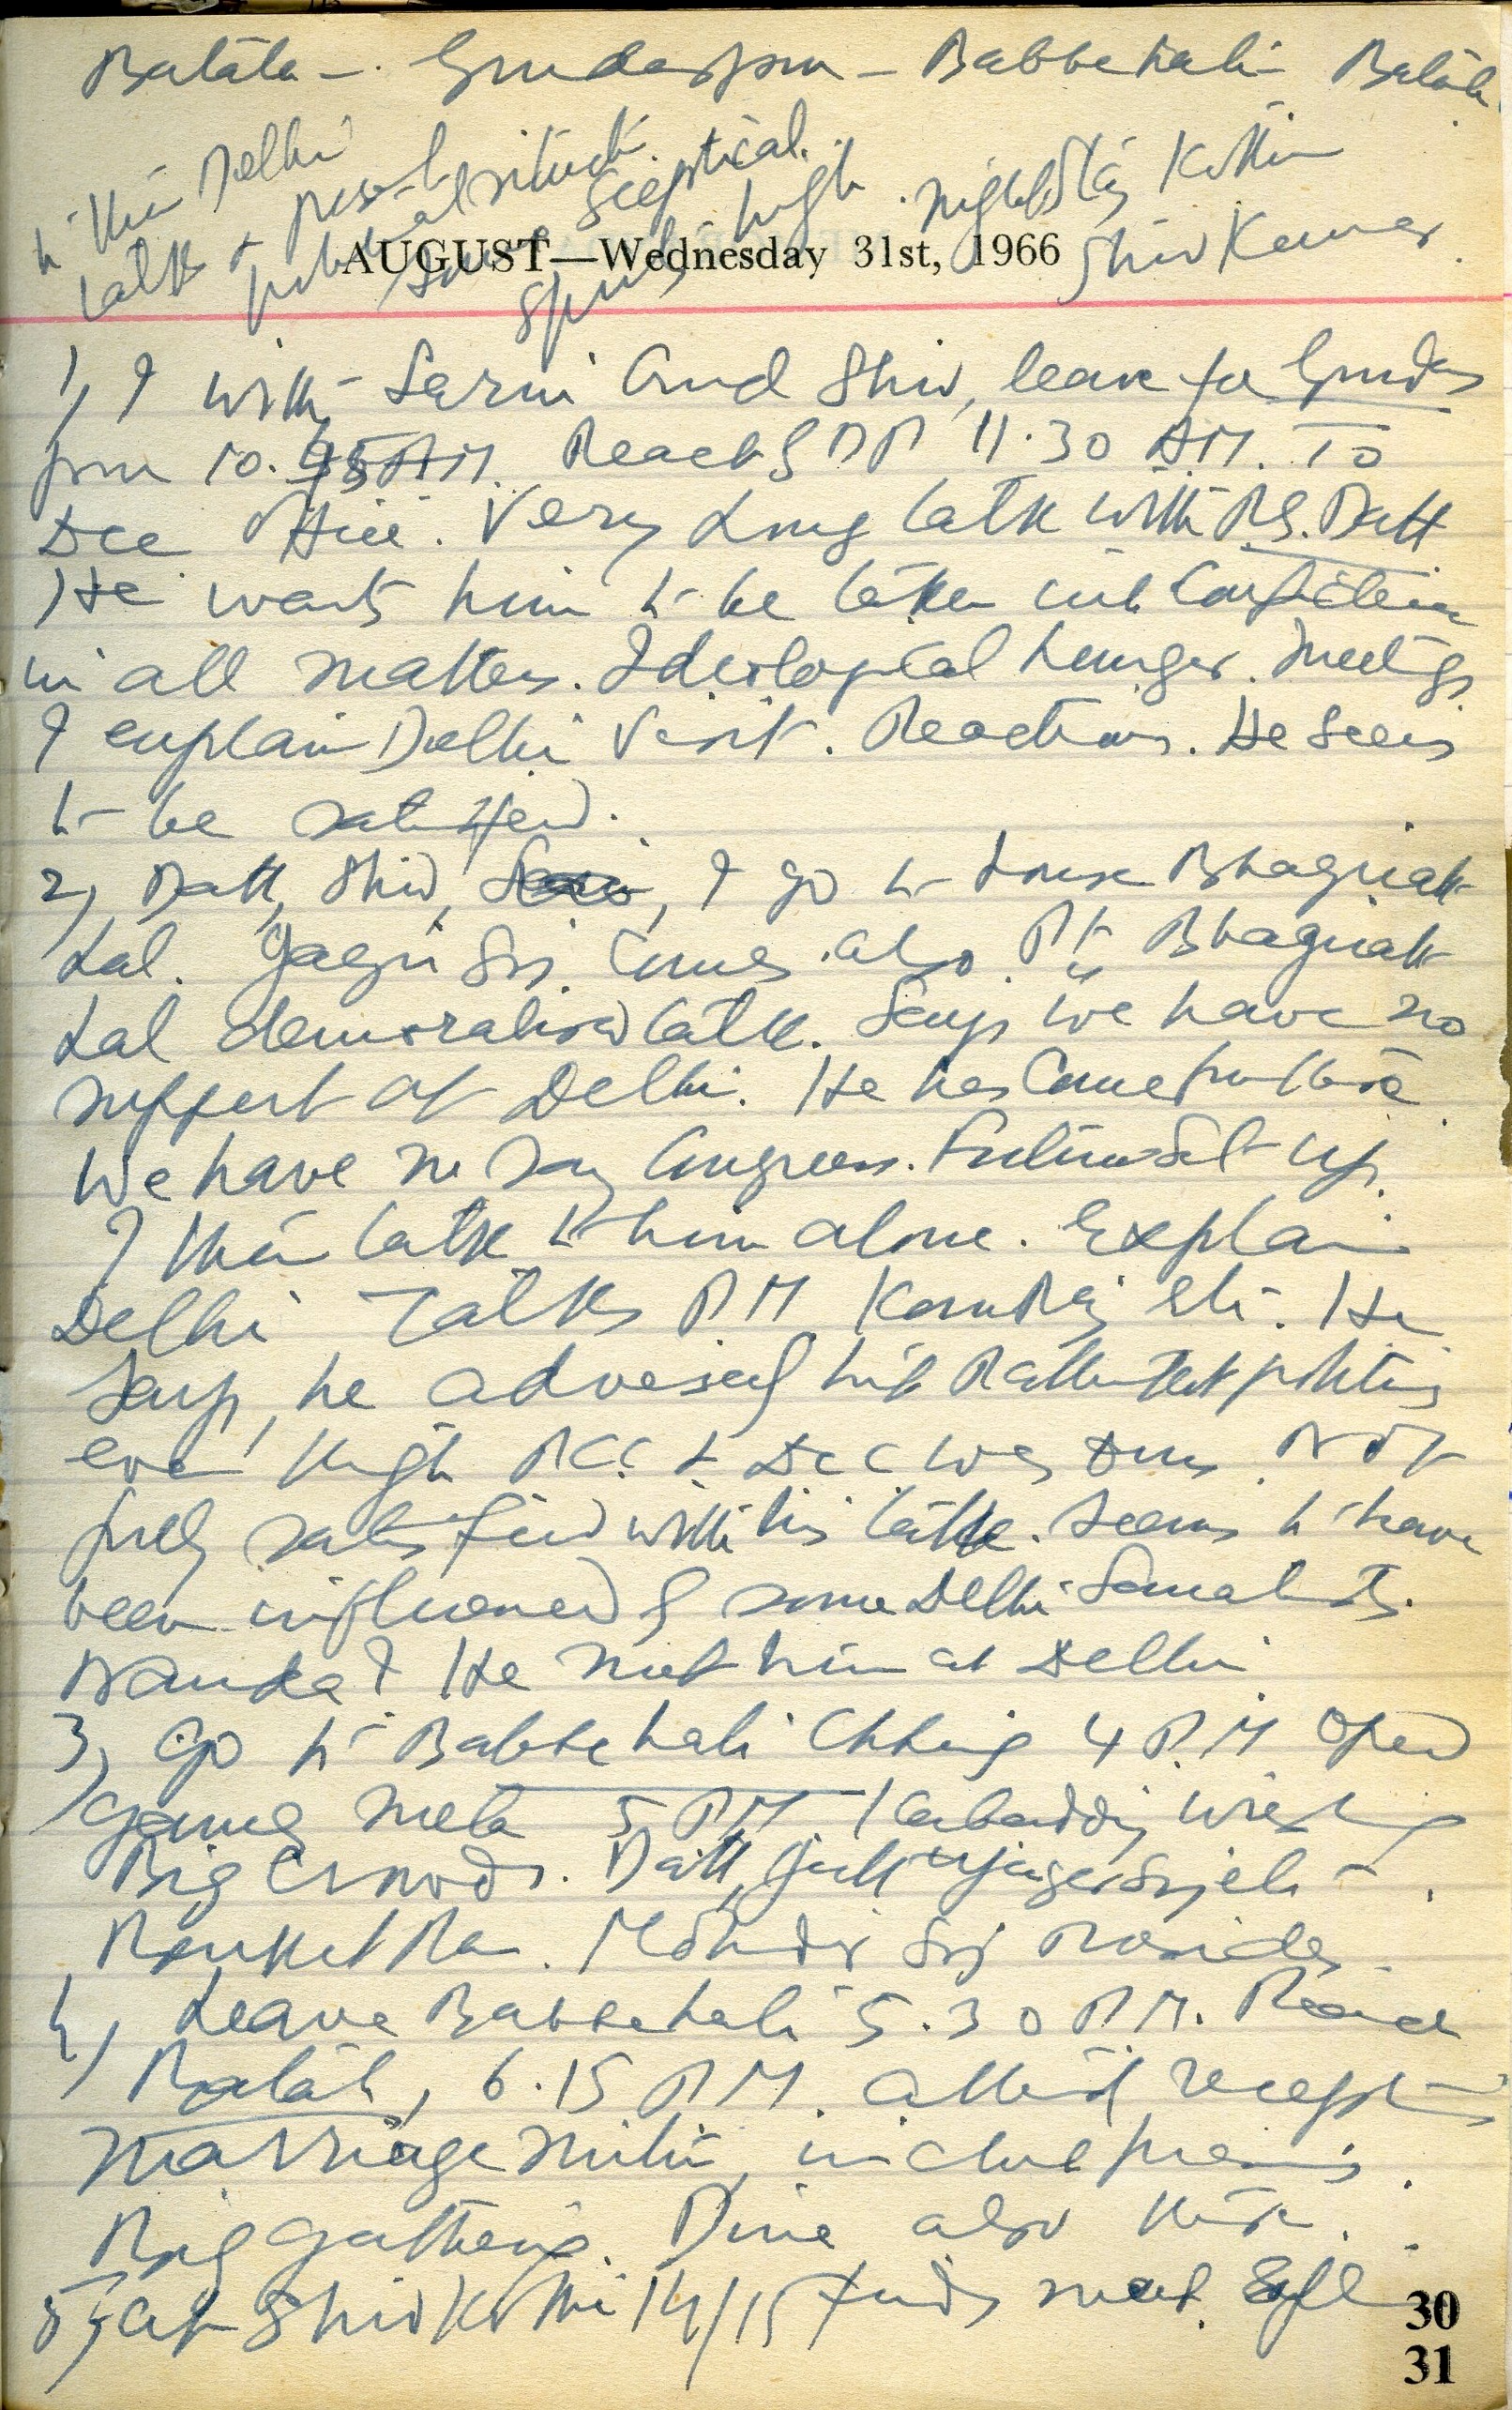 Batala - Gurdaspur - Babbehali Batala
Delhi
talks + present
political situation.
some sceptical.
spirits high. night stay Kothi
Shiv Kumar.
AUGUST—Wednesday 31st, 1966
1, I with Sarni and Shiv, leave for Gurdas
pur 10.45 AM. Reach GDP 11.30 AM. To
Dcc Office. Very Long talk with R.S. Datt
He wants him to be taken into Confidence
in all matters. Ideological hunger. meetings
I explain Delhi visit. Reactions. He seems
to be satisfied.
2, Datt, Shiv, I go to house Bhagirath
Lal. Jagir Singh comes also. Pt. Bhagirath
Lal demoralised talk. Says we have no
support at Delhi. He has come from there
We have no say Congress. Future Set up.
I then talk to him alone. Explain
Delhi Talks PM KamRaj etc. He
Says, he advised
even though PCC & Dcc was
fully satisfied with his talk. Seems to have
been influenced by some Delhi
Nanda? He met him at Delhi
3, go to Babbehali Chhing 4 P.M. Open
games mela 5 PM. Kabaddi, wrestling
Big Crowds. Datt,
Mohinder Singh Presides.
4, Leave Babbehali 5.30 P.M. Reach
Batala, 6.15 PM. attend reception
marriage in club premises.
Big gathering. Dine also there.
5, at Shiv Kothi 14/15 friends meet.
30
31